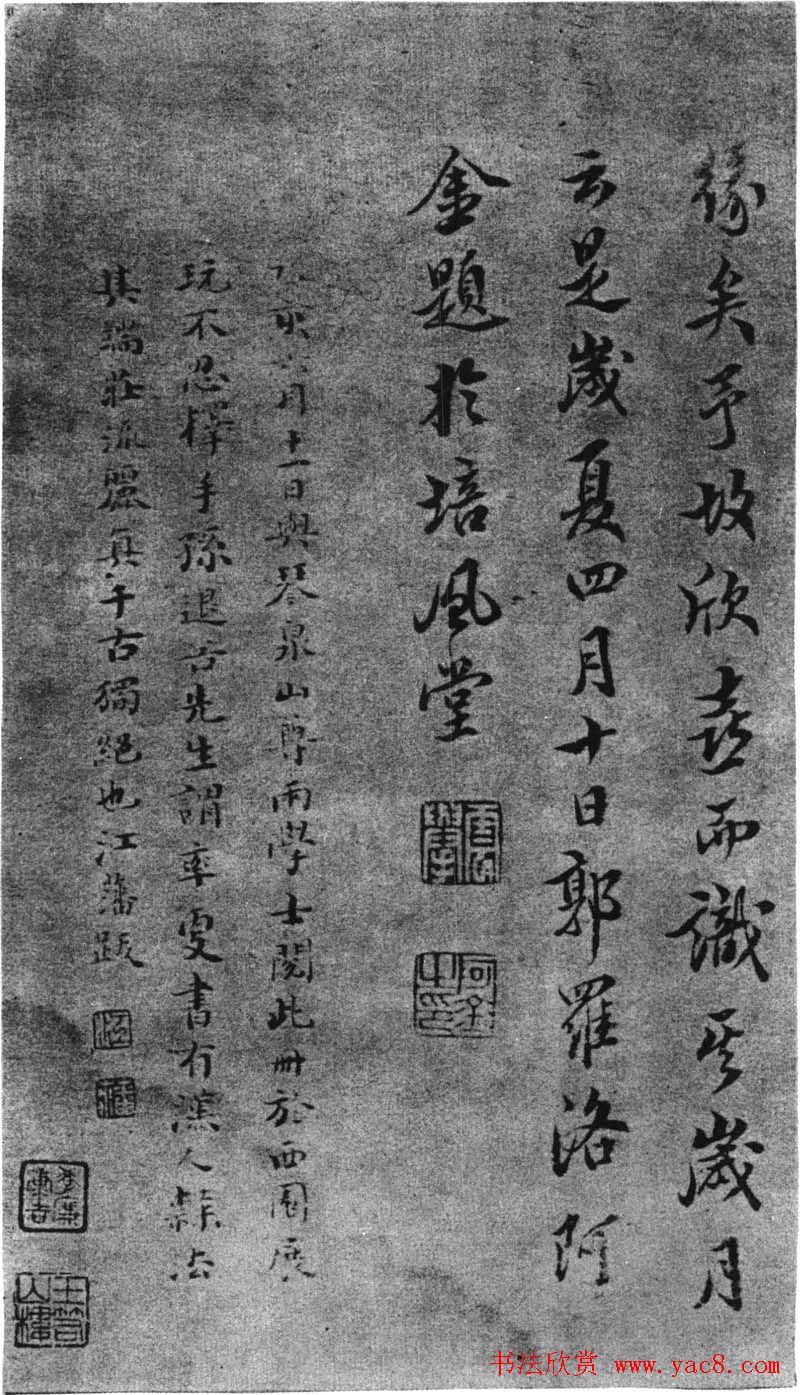 緣矣予故欣喜而識其歲月
云是歲夏四月十日郭羅洛阿
金題於培風堂
亥六月十一日與琴泉山尊兩學士閱此冊於西園展
玩不忍釋手孫退谷先生謂率更書有漢人隸法
其端莊流麗真千古獨絕也江藩跋
书法欣赏 www.yac8.com